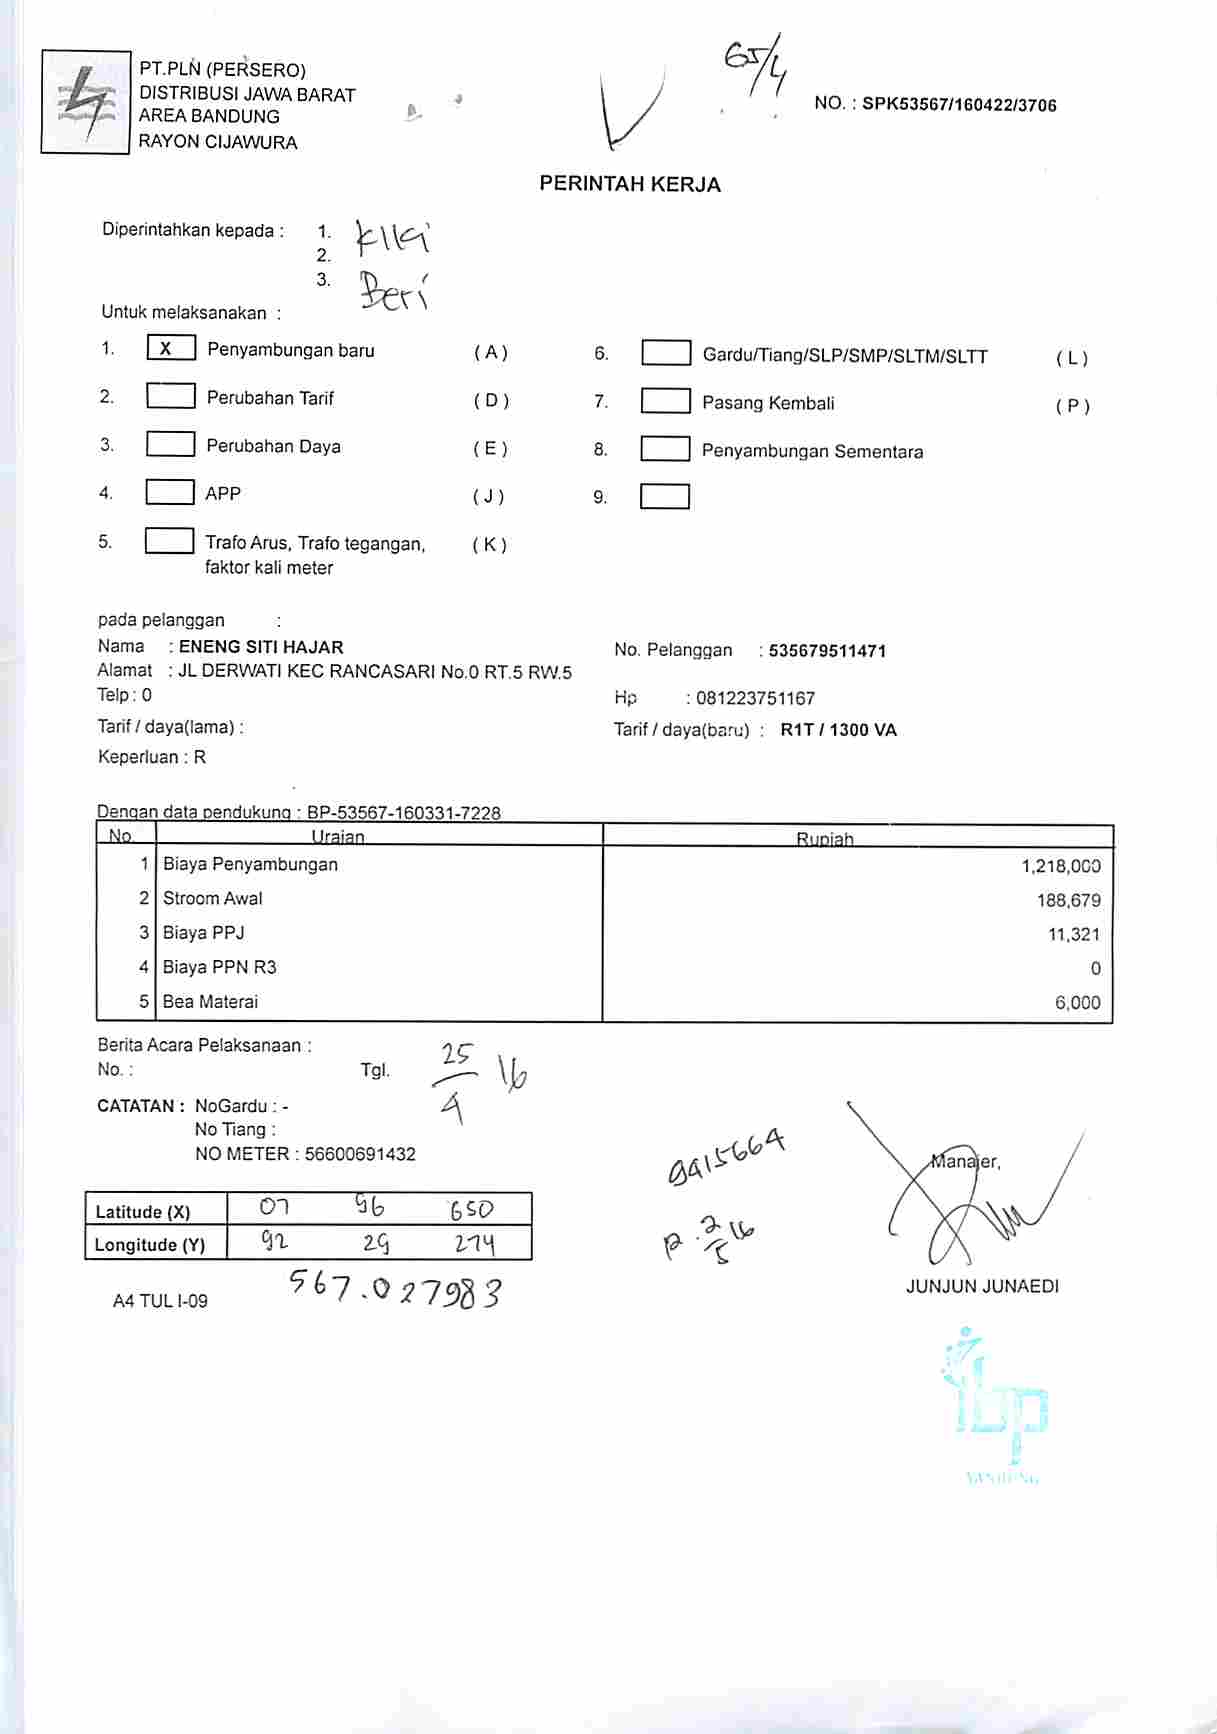 PT.PLN (PERSERO)
DISTRIBUSI JAWA BARAT
AREA BANDUNG
RAYON CIJAWURA
65/4
NO. : SPK53567/160422/3706
PERINTAH KERJA
Diperintahkan kepada : 1. Kiki
2.
3. Beri
Untuk melaksanakan :
1. X Penyambungan baru ( A )
2. Perubahan Tarif ( D )
3. Perubahan Daya ( E )
4. APP ( J )
5. Trafo Arus, Trafo tegangan, ( K )
faktor kali meter
6. Gardu/Tiang/SLP/SMP/SLTM/SLTT ( L )
7. Pasang Kembali ( P )
8. Penyambungan Sementara
9.
pada pelanggan :
Nama : ENENG SITI HAJAR
No. Pelanggan : 535679511471
Alamat : JL DERWATI KEC RANCASARI No.0 RT.5 RW.5
Telp : 0
Hp : 081223751167
Tarif / daya(lama) :
Tarif / daya(baru) : R1T / 1300 VA
Keperluan : R
Dengan data pendukung : BP-53567-160331-7228
No. Uraian Rupiah
1 Biaya Penyambungan 1,218,000
2 Stroom Awal 188,679
3 Biaya PPJ 11,321
4 Biaya PPN R3 0
5 Bea Materai 6,000
Berita Acara Pelaksanaan :
No. : Tgl. 25/4 16
CATATAN : NoGardu : -
No Tiang :
NO METER : 56600691432
9415664
Manajer,
Latitude (X) 07 96 650
Longitude (Y) 92 29 274
P. 2/5 16
567.027983
JUNJUN JUNAEDI
A4 TUL I-09
ibp
BANDUNG